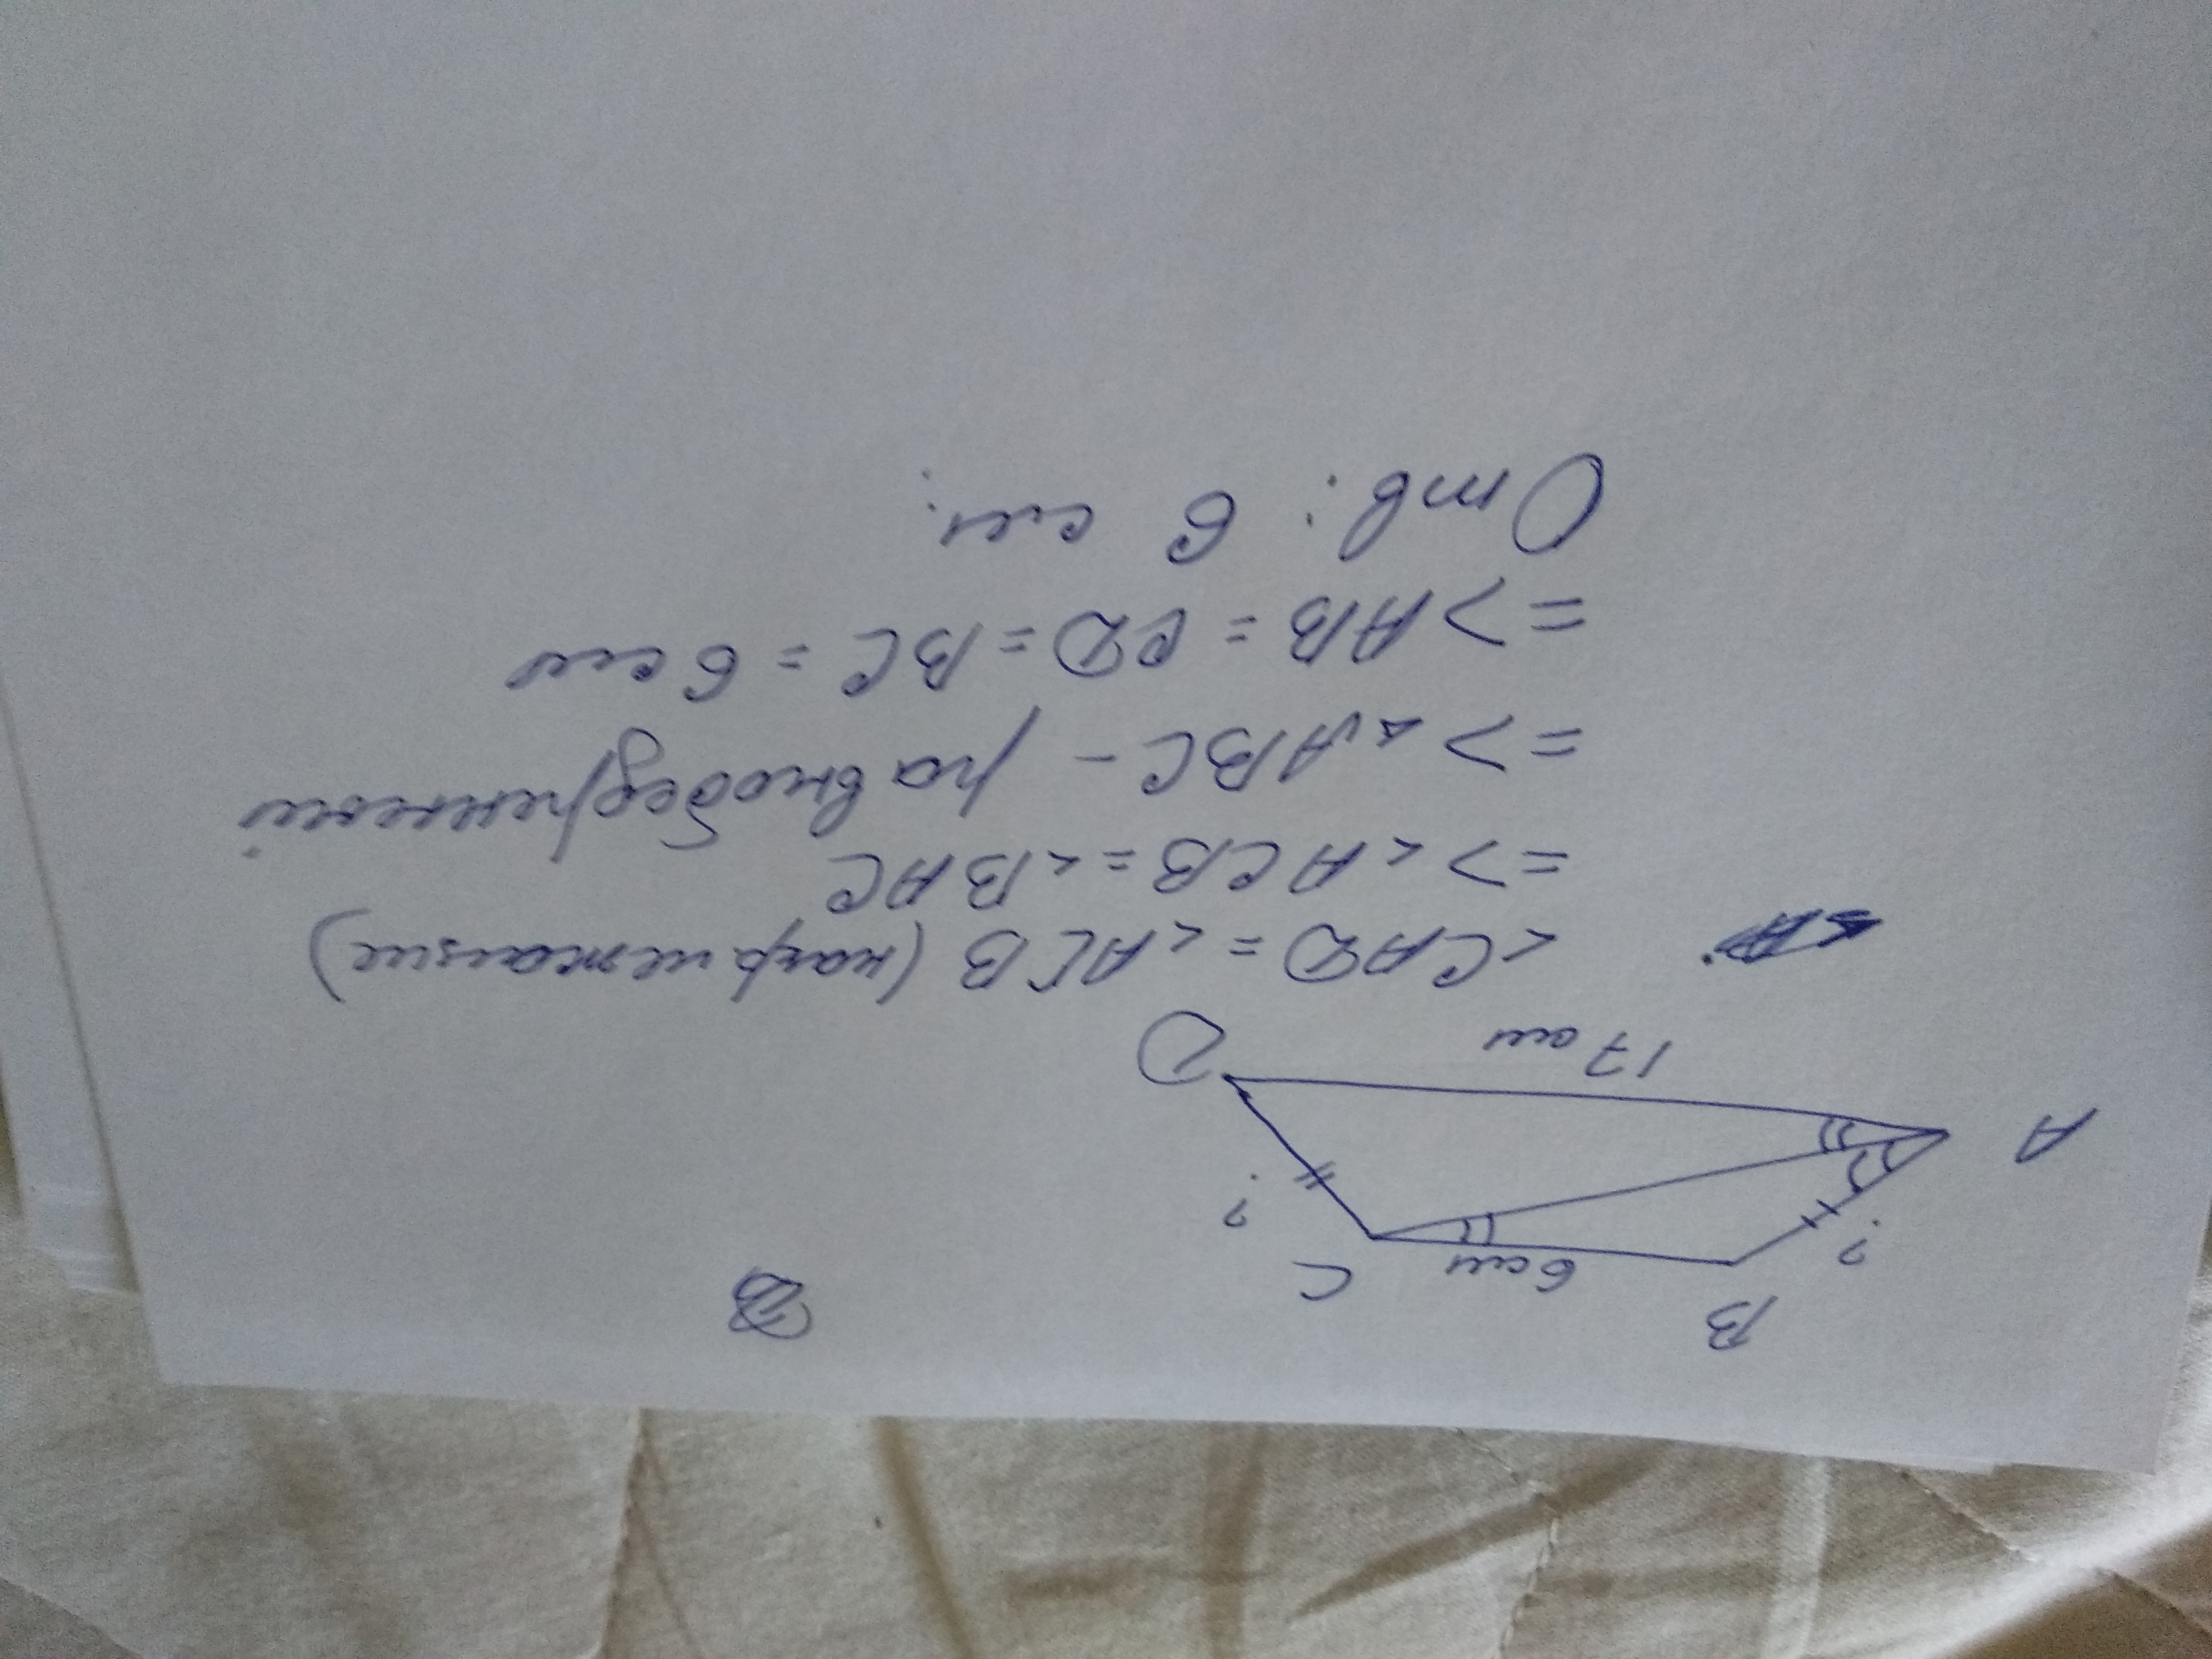 B
C
6 см
?
?
A
D
17 см
<CAD = <ACB (накр лежащие)
=> <ACB = <BAC
=> △ABC - равнобедренный
=> AB = CD = BC = 6 см
Отв: 6 см.